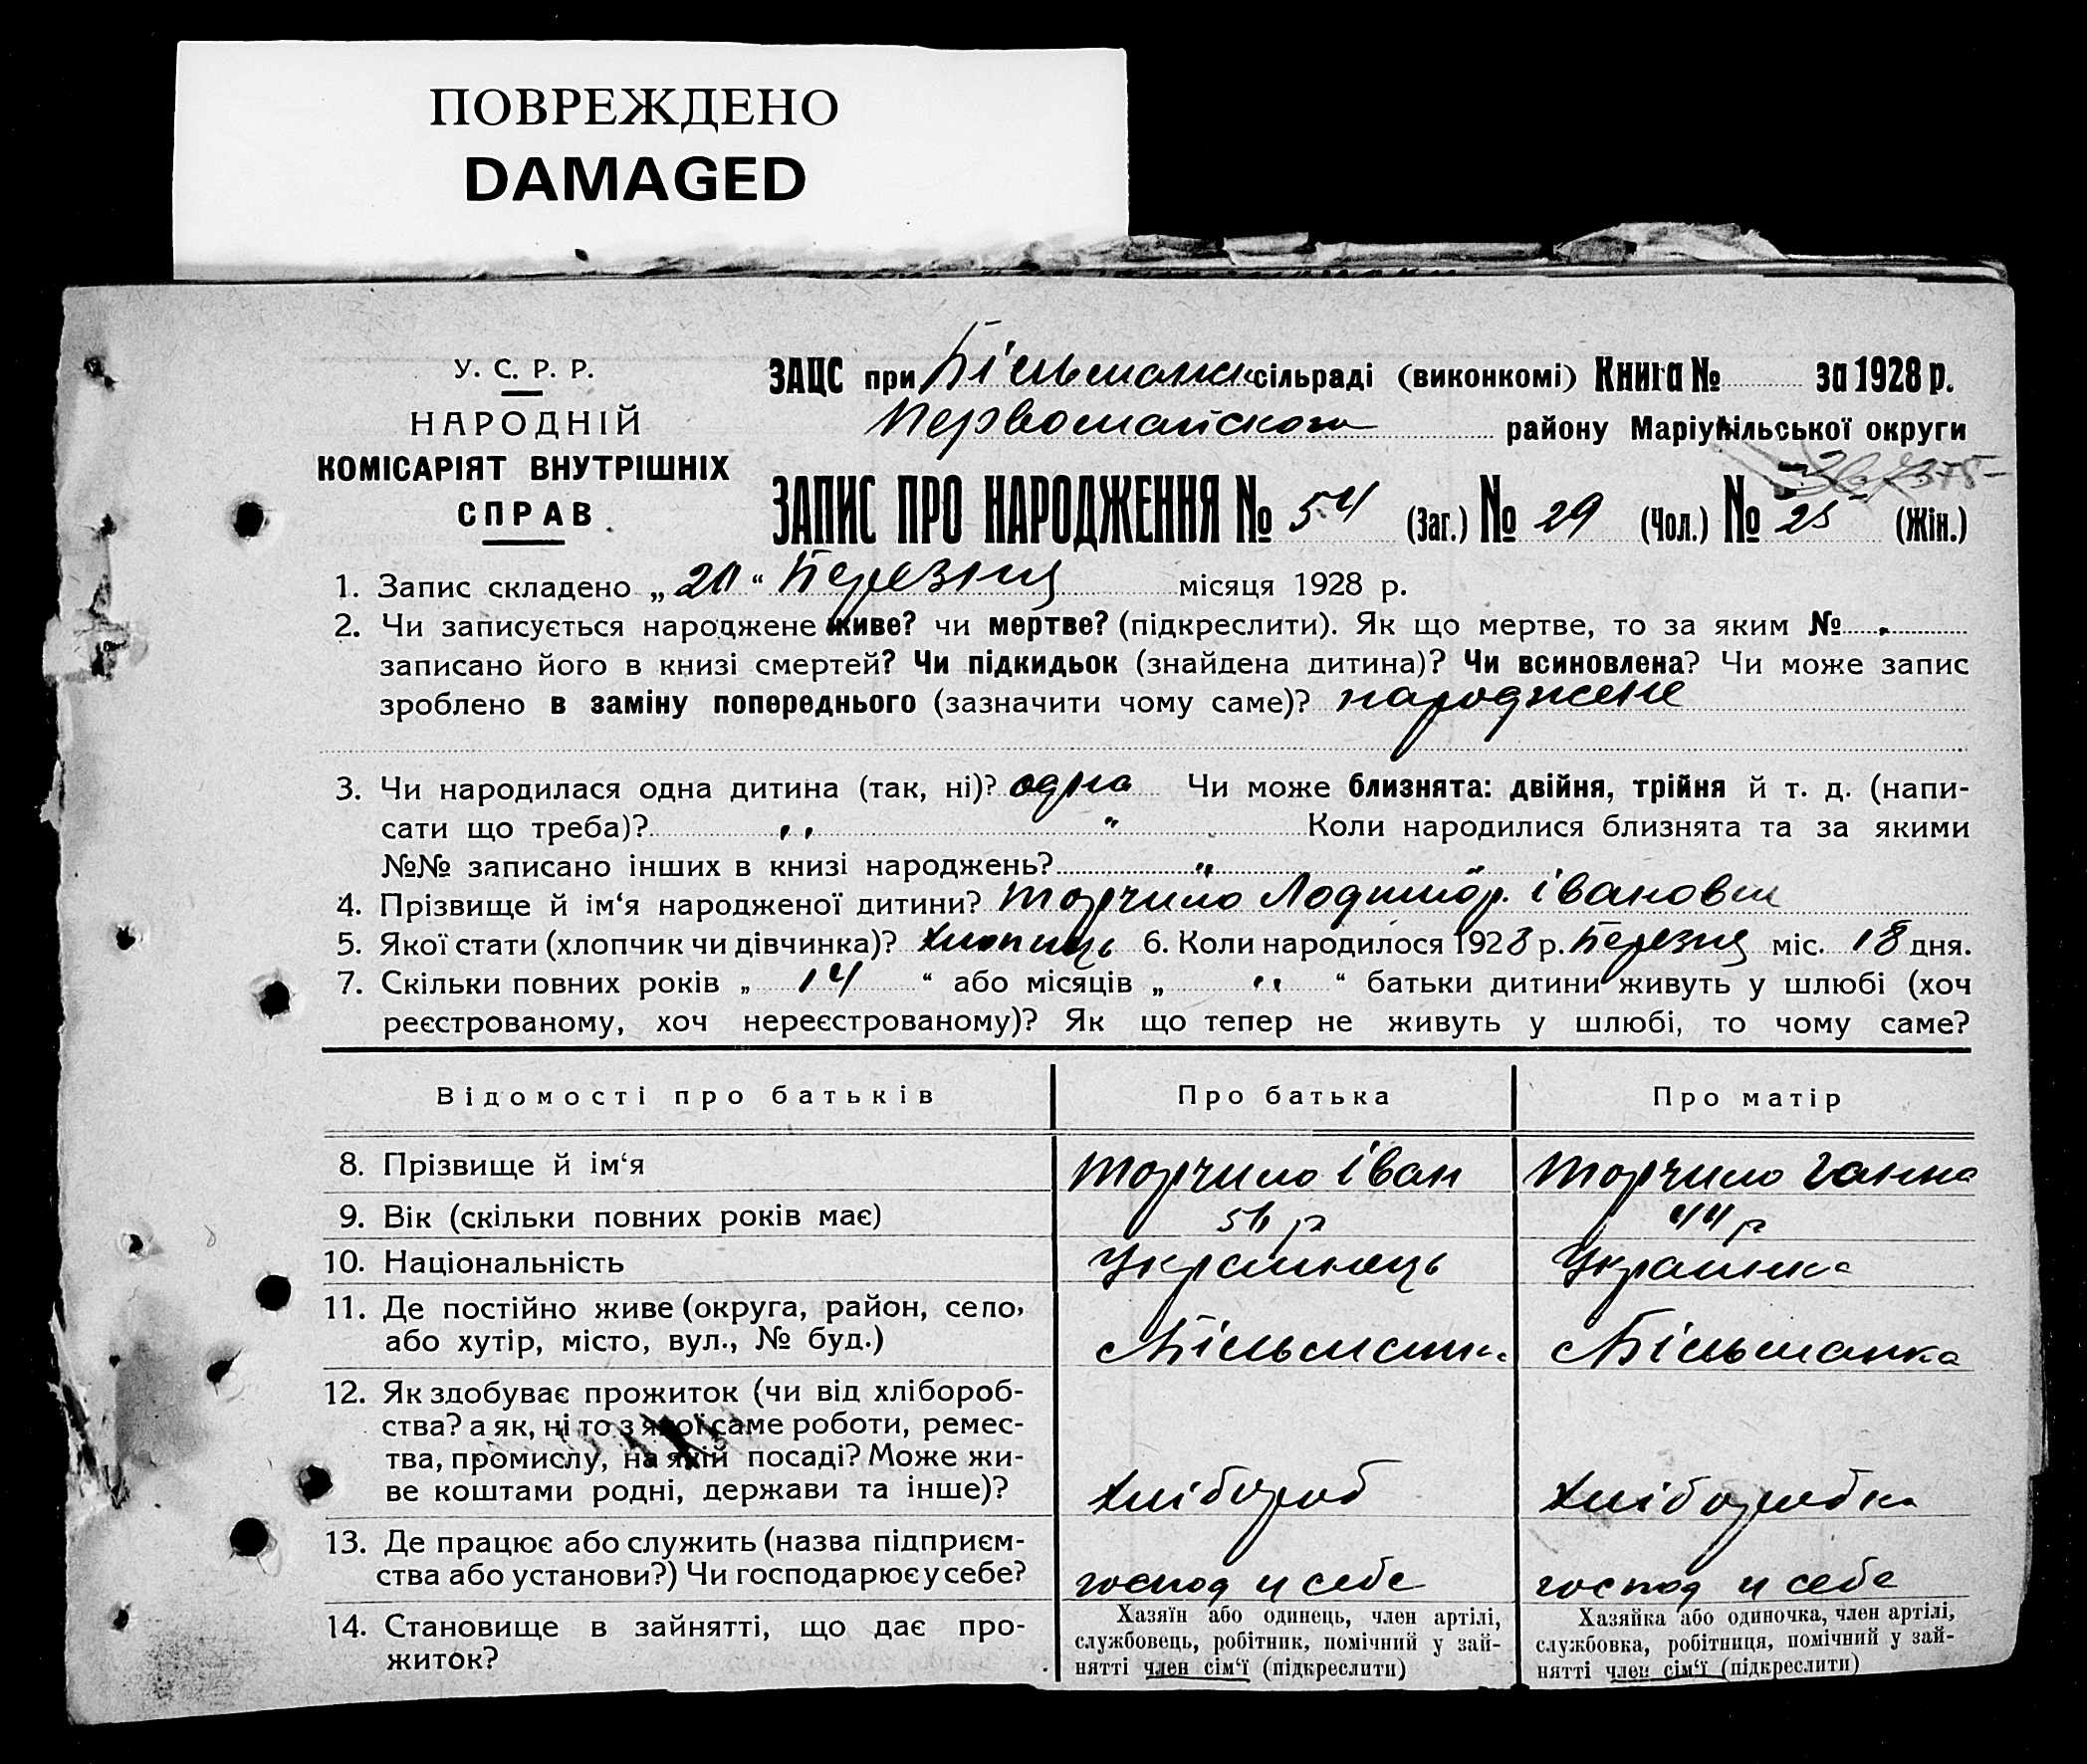 ПОВРЕЖДЕНО
DAMAGED
У. С. Р. Р.
НАРОДНІЙ
КОМІСАРІЯТ ВНУТРІШНІХ
СПРАВ.
ЗАЦС при Більманск сільраді (виконкомі) Книга № за 1928 р.
Первомайского району Маріупільської округи
ЗАПИС ПРО НАРОДЖЕННЯ № 54 (Заг.) № 29 (Чол.) № 25 (Жін.)
1. Запис складено „ “ Березня місяця 1928 р.
2. Чи записується народжене живе? чи мертве? (підкреслити). Як що мертве, то за яким №
записано його в книзі смертей? Чи підкидьок (знайдена дитина)? Чи всиновлена? Чи може запис
зроблено в заміну попереднього (зазначити чому саме)? народжене
3. Чи народилася одна дитина (так, ні)? одна Чи може близнята: двійня, трійня й т. д. (напи-
сати що треба)? „ “ Коли народилися близнята та за якими
№№ записано інших в книзі народжень? „
4. Прізвище й ім‘я народженої дитини? Торчило Іванович
5. Якої стати (хлопчик чи дівчинка)? хлопиць 6. Коли народилося 1928 р. Березня міс. 18 дня.
7. Скільки повних років „ 14 “ або місяців „ „ “ батьки дитини живуть у шлюбі (хоч
реєстрованому, хоч нереєстрованому)? Як що тепер не живуть у шлюбі, то чому саме?
Відомості про батьків Про батька Про матір
8. Прізвище й ім‘я Торчило Іван Торчило Ганна
9. Вік (скільки повних років має) р 44 р
10. Національність Українець Українка
11. Де постійно живе (округа, район, село,
або хутір, місто, вул., № буд.) с Більманка с Більманка
12. Як здобуває прожиток (чи від хлібороб-
ства? а як, ні то з якої саме роботи, ремес-
тва, промислу, на якій посаді? Може жи-
ве коштами родні, держави та інше)? хлібороб хліборобка
13. Де працює або служить (назва підприєм-
ства або установи?) Чи господарює у себе? господ у себе господ у себе
14. Становище в зайнятті, що дає про-
житок?
Хазяїн або одинець, член артілі,
службовець, робітник, помічний у зай-
нятті член сім‘ї (підкреслити)
Хазяйка або одиночка, член артілі,
службовка, робітниця, помічний у зай-
нятті член сім‘ї (підкреслити)